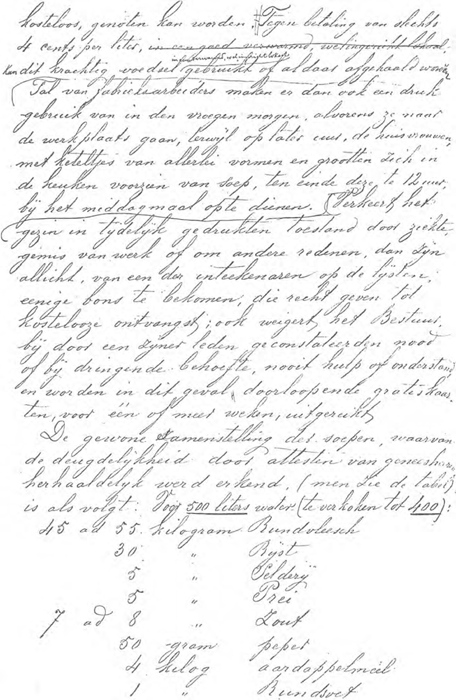 kosteloos, genoten kan worden. Tegen betaling van slechts
4 cents per liter, in een goed verwarmd, wel ingericht lokaal,
kan dit krachtig voedsel gebruikt of aldaar afgehaald worden
Tal van fabrieksarbeiders maken er dan ook een druk
gebruik van in den vroegen morgen, alvorens ze naar
de werkplaats gaan, terwijl op later uur, de huisvrouwen,
met keteltjes van allerlei vormen en grootten zich in
de keuken voorzien van soep, ten einde deze te 12 uur,
bij het middagmaal op te dienen. Verkeert het
gezin in tijdelijk gedrukten toestand door ziekte
gemis van werk of om andere redenen, dan zijn
allicht, van een der inteekenaren op de lijsten,
eenige bons te bekomen, die recht geven tot
kostelooze ontvangst; ook weigert het Bestuur,
bij door een zijner leden geconstateerden nood
of bij dringende behoefte, nooit hulp of onderstand
en worden in dit geval doorloopende gratis kaar-
ten, voor één of meer weken, uitgereikt
De gewone samenstelling der soepen, waarvan
de deugdelijkheid door attesten van geneesheren
herhaaldelijk werd erkend, (men zie de tabel)
is als volgt: Voor 500 liters water (te verkoken tot 400):
45 ad 55 kilogram Rundvleesch
30 " Rijst
5 " Selderij
5 " Prei
7 ad 8 " Zout
50 gram peper
4 kilog aardappelmeel
1 " Rundsvet